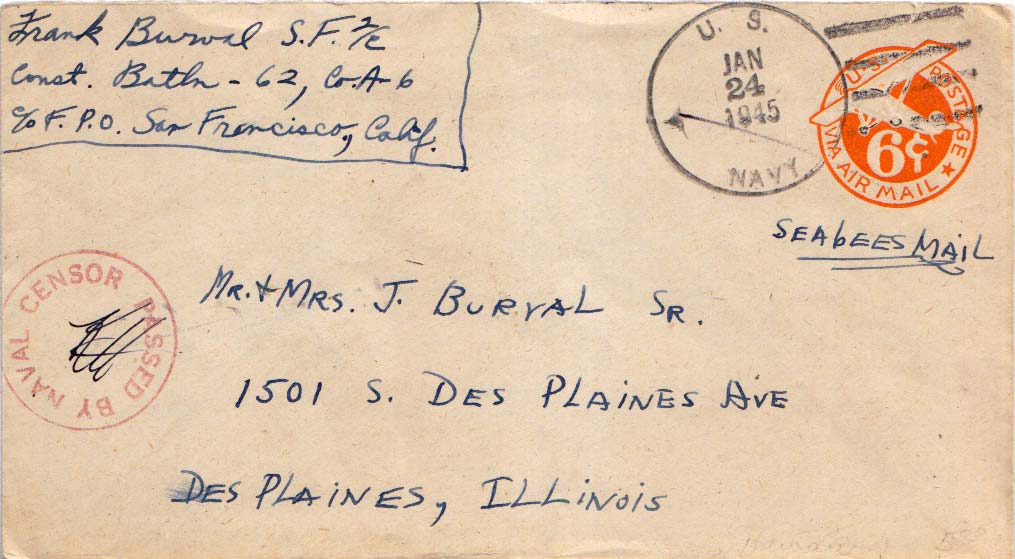 Frank Burval S.F. 2/c
Const. Batln - 62, Co. A-6
c/o F.P.O. San Francisco, Calif.
U. S.
JAN
24
1945
NAVY
U.S. POSTAGE
6¢
VIA AIR MAIL
SEAbEES MAIL
PASSED BY NAVAL CENSOR
MR. & MRS. J. BURVAL SR.
1501 S. DES PLAINES AVE
DES PLAINES, ILLINOIS